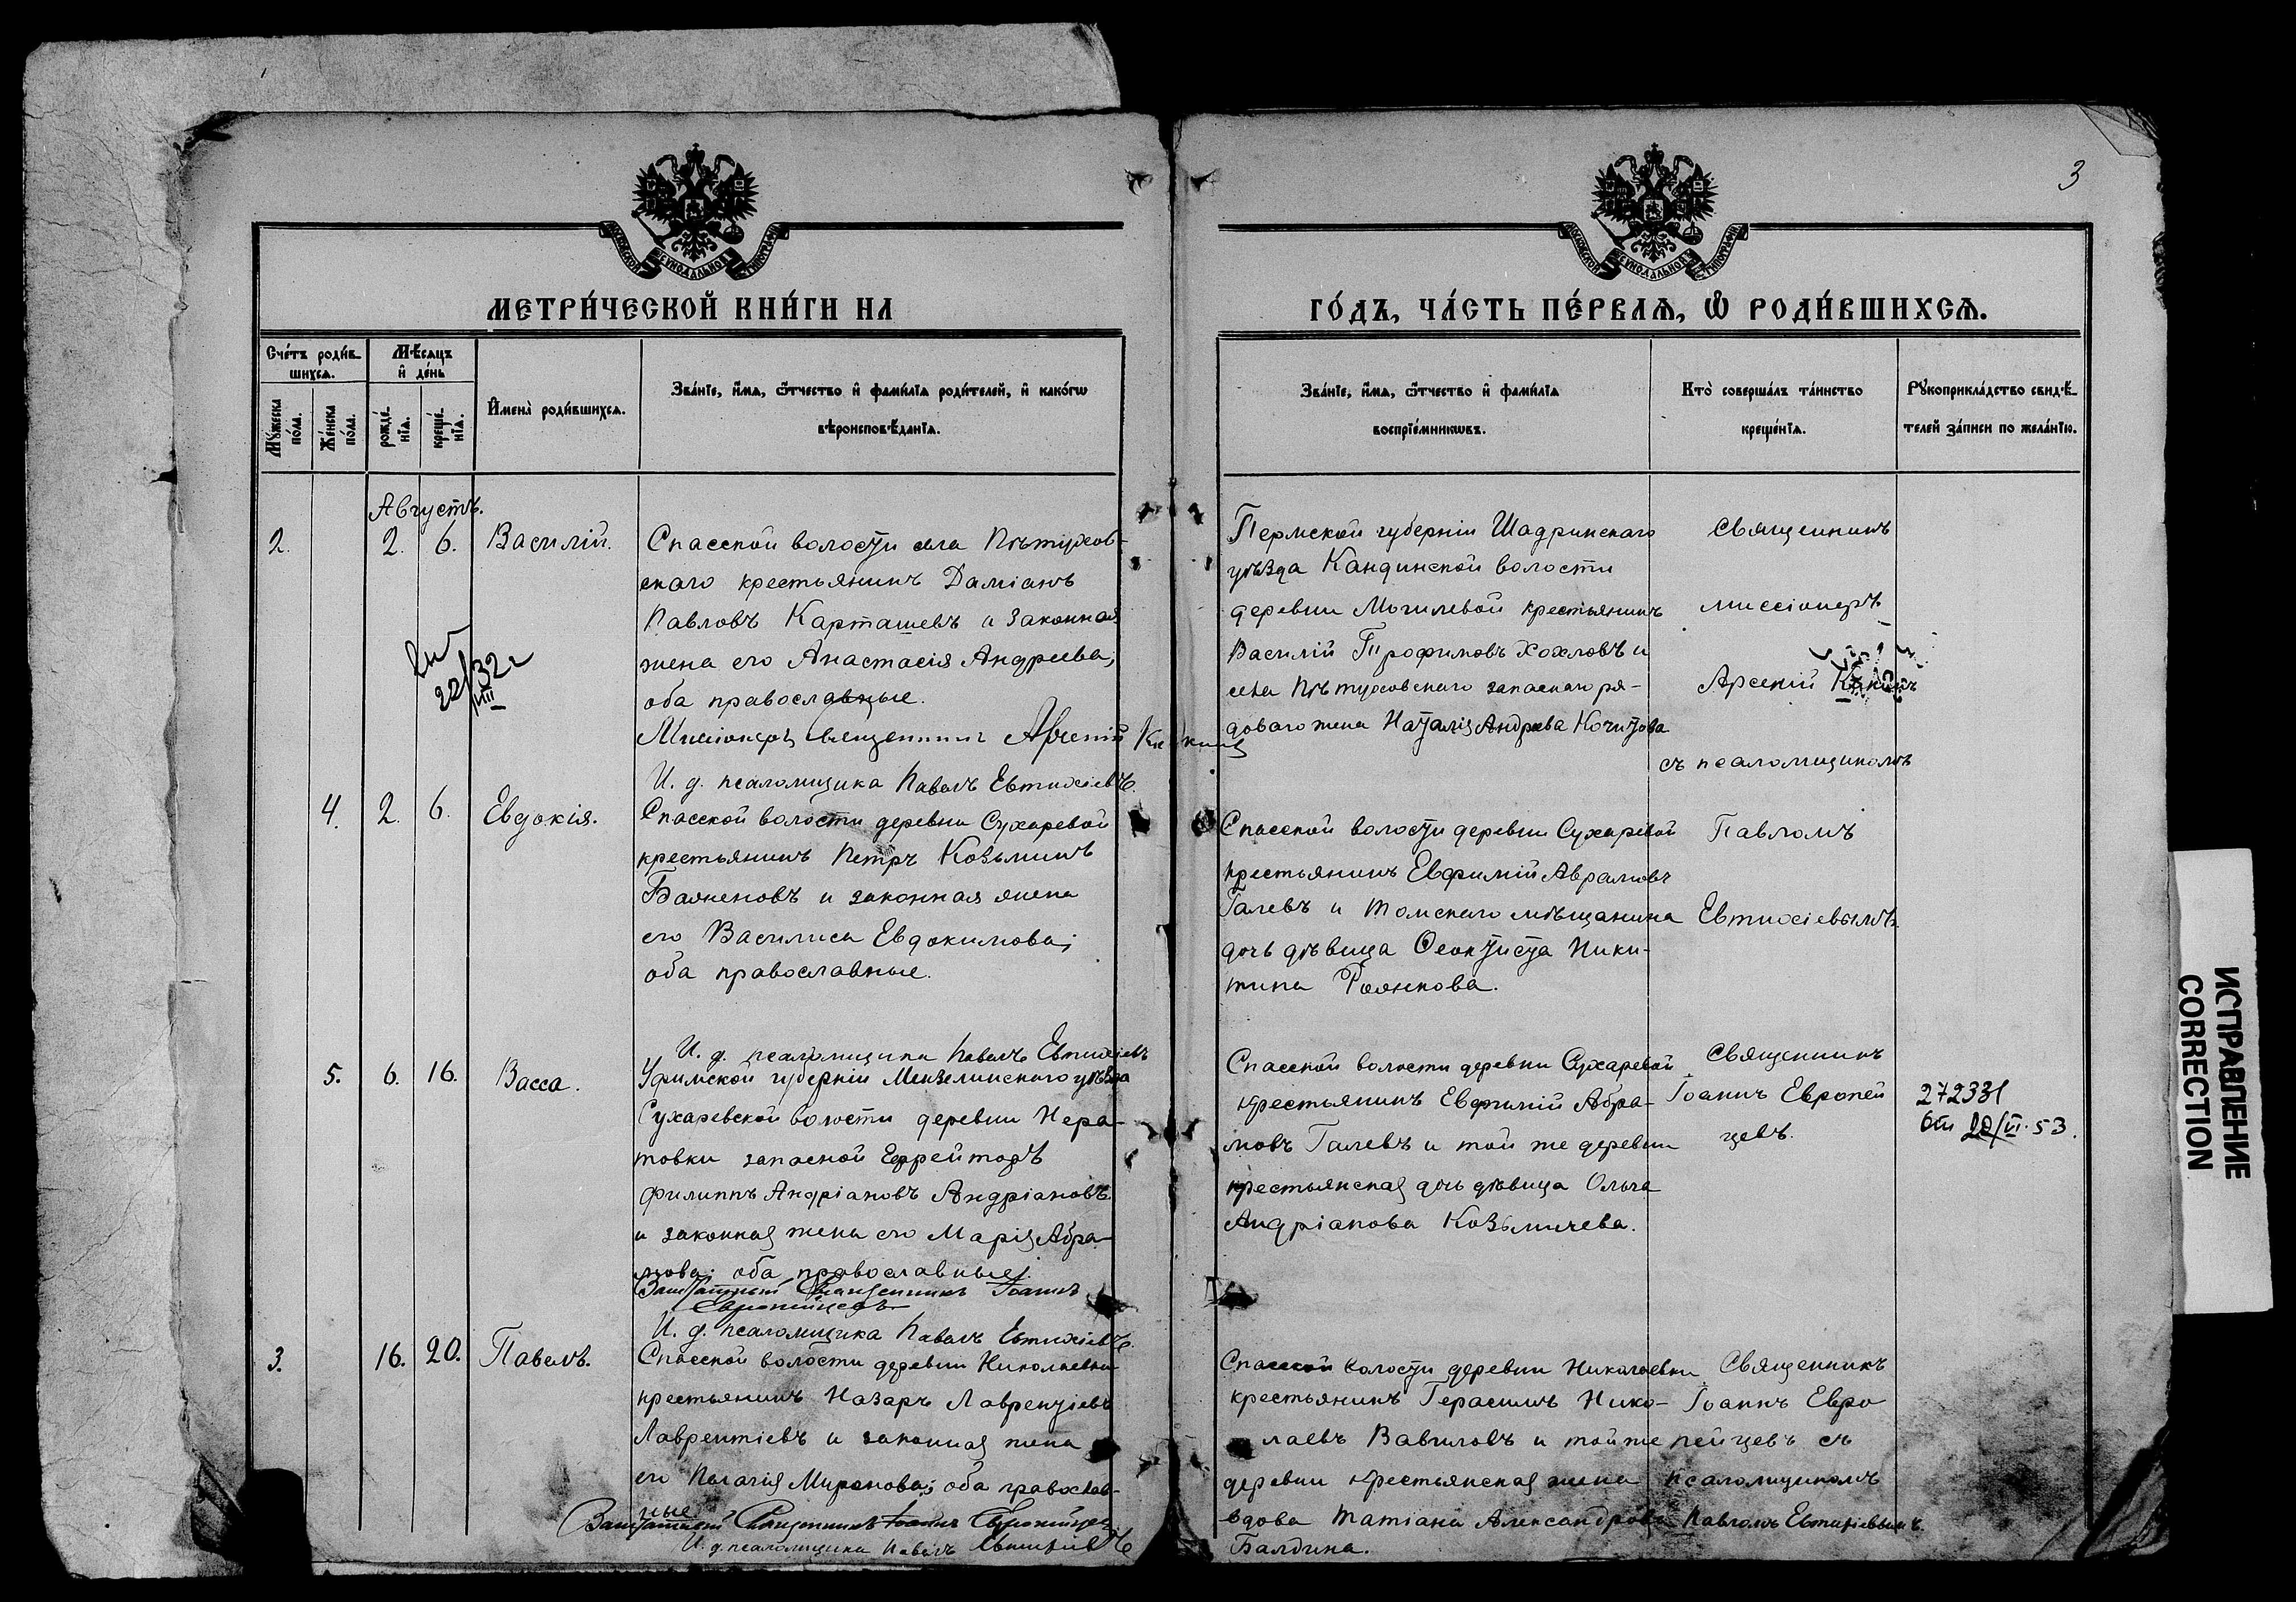 3
МОСКОВСКОЙ СѴНОДАЛЬНОЙ ТИПОГРАФІИ
МОСКОВСКОЙ СѴНОДАЛЬНОЙ ТИПОГРАФІИ
МЕТРИ́ЧЕСКОЙ КНИ́ГИ НА
ГО́ДЪ, ЧА́СТЬ ПЕ́РВАѦ, Ѿ РОДИ́ВШИХСѦ.
Сче́тъ роди́в-
шихсѧ.
Мꙋ́жеска по́ла.
Же́нска по́ла.
Мѣ́сѧцъ
и҆ де́нь
рожде́-
нїѧ.
креще́-
нїѧ.
И҆мена̀ роди́вшихсѧ.
Зва́нїе, и҆́мѧ, ѻ҆́тчество и҆ фами́лїѧ роди́телей, и҆ како́гѡ
вѣроисповѣ́данїѧ.
Зва́нїе, и҆́мѧ, ѻ҆́тчество и҆ фами́лїѧ
воспрїе́мникѡвъ.
Кто̀ соверша́лъ та́инство
креще́нїѧ.
Рꙋкоприкла́дство свидѣ́-
телей за́писи по жела́нїю.
Августъ.
2. 2. 6. Василій.
Спасской волости села Пѣтухов-
скаго крестьянинъ Даміанъ
Павловъ Карташевъ и законная
жена его Анастасія Андреева;
оба православные.
Миссіонеръ священникъ Арсеній
И. д. псаломщика Павелъ Евтихіевъ.
22/VIII 32 г
Пермской губерніи Шадринскаго
уѣзда Кандинской волости
деревни Могилевой крестьянинъ
Василій Трофимовъ Хохловъ и
села Пѣтуховскаго запаснаго ря-
доваго жена Наталія Андреева Кочитова
Священникъ
миссіонеръ
Арсеній
съ псаломщикомъ
Павломъ
Евтихіевымъ.
4. 2. 6. Евдокія.
Спасской волости деревни Сухаревой
крестьянинъ Петръ Козьминъ
Баженовъ и законная жена
его Василиса Евдокимова;
оба православные.
И. д. псаломщика Павелъ Евтихіевъ
Спасской волости деревни Сухаревой
крестьянинъ Евфимій Аврамовъ
Галевъ и Томскаго мѣщанина
дочь дѣвица Ѳеоктиста Ники-
тина Роянкова.
5. 6. 16. Васса.
Уфимской губерніи Мензелинскаго уѣзда
Сухаревской волости деревни Нера-
товки запасной Ефрейторъ
Филиппъ Андріановъ Андріановъ
и законная жена его Марія Абра-
мова; оба православные.
Заштатный Священникъ Іоаннъ
Европейцевъ
И. д. псаломщика Павелъ Евтихіевъ.
Спасской волости деревни Сухаревой
крестьянинъ Евфимій Абра-
мовъ Галевъ и той же деревни
крестьянская дочь дѣвица Ольга
Андріанова Козьмичева.
Священникъ
Іоаннъ Европей
цевъ.
272331
от 20/VI.53.
3. 16. 20. Павелъ.
Спасской волости деревни Николаевки
крестьянинъ Назаръ Лаврентіевъ
Лаврентіевъ и законная жена
его Пелагія Миронова; оба православ-
ные
Заштатный Священникъ Іоаннъ Европейцевъ
И. д. псаломщика Павелъ Евтихіевъ
Спасской волости деревни Николаевки
крестьянинъ Герасимъ Нико-
лаевъ Вавиловъ и той же
деревни крестьянская жена
вдова Татіана Александрова
Балдина.
Священникъ
Іоаннъ Евро
пейцевъ съ
псаломщикомъ
Павломъ Евтихіевымъ.
ИСПРАВЛЕНИЕ
CORRECTION